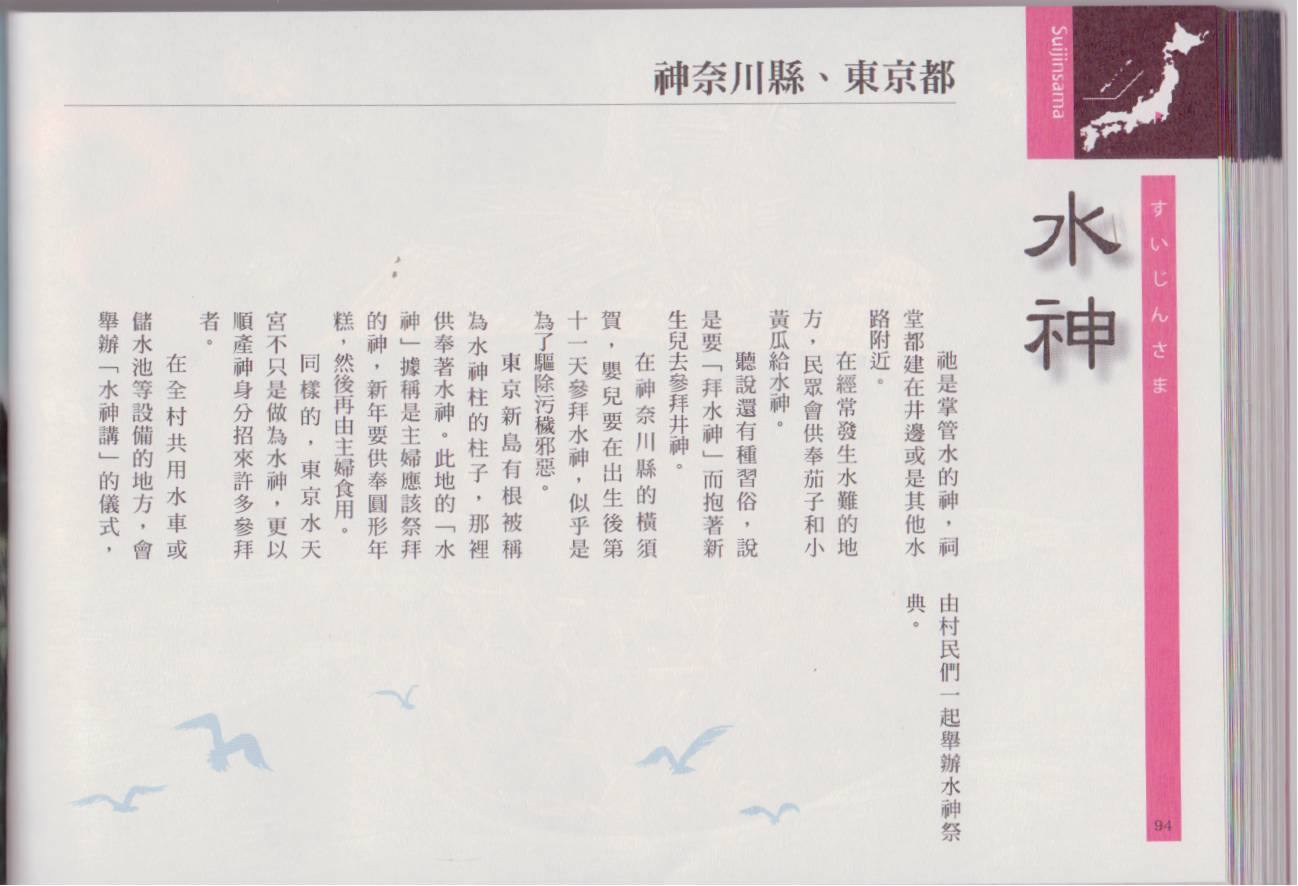 Suijinsama
神奈川縣、東京都
すいじんさま
水神
祂是掌管水的神，祠
堂都建在井邊或是其他水
路附近。
在經常發生水難的地
方，民眾會供奉茄子和小
黃瓜給水神。
聽說還有種習俗，說
是要「拜水神」而抱著新
生兒去參拜井神。
在神奈川縣的橫須
賀，嬰兒要在出生後第
十一天參拜水神，似乎是
為了驅除污穢邪惡。
東京新島有根被稱
為水神柱的柱子，那裡
供奉著水神。此地的「水
神」據稱是主婦應該祭拜
的神，新年要供奉圓形年
糕，然後再由主婦食用。
同樣的，東京水天
宮不只是做為水神，更以
順產神身分招來許多參拜
者。
在全村共用水車或
儲水池等設備的地方，會
舉辦「水神講」的儀式，
由村民們一起舉辦水神祭
典。
94